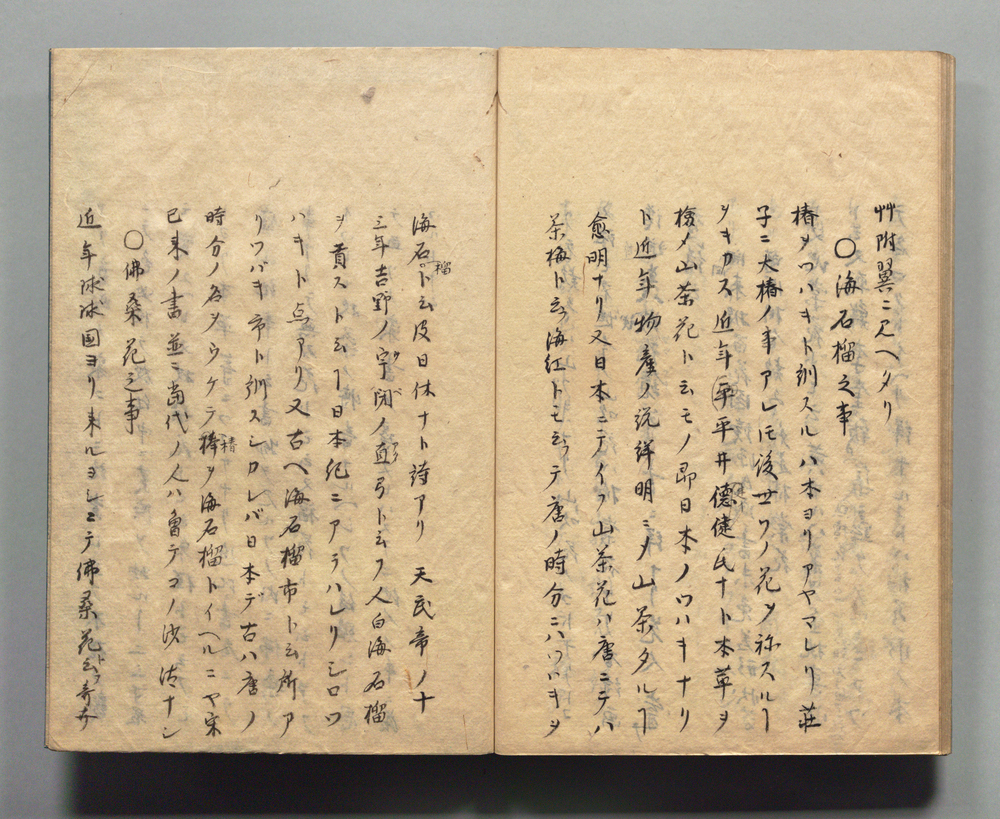 艸附翼ニ見ヘタリ
〇海石榴之事
椿ヲツハキト訓スルハ本ヨリアヤマレリ荘
子ニ大椿ノ事アレモ後世ツノ花ヲ祢スルヿ
ヲキカス近年平平井德健氏ナト本草ヲ
檢メ山茶花ト云モノ即日本ノツハキナリ
ト近年物產ノ説詳明ニノ山茶タルヿ
愈明ナリ又日本ニテイフ山茶花ハ唐ニテハ
茶梅ト云フ海紅トモ云フテ唐ノ時分ニハツハキヲ
海石榴ト云皮日休ナト詩アリ 天武帝ノ十
三年吉野ノ宇閉ノ直弓ト云フ人白海石榴
ヲ貢スト云ヿ日本紀ニアラハレリシロツ
ハキト点アリ又古ヘ海石榴市ト云所ア
リツバキ市ト訓スシカレバ日本デ古ハ唐ノ
時分ノ名ヲウケテ椿ヲ海石榴トイヘルニヤ宋
已来ノ書並ニ當代ノ人ハ曽テコノ沙法ナシ
〇佛桑花之事
近年球球國ヨリ来ルヨシニテ佛桑花ト云フ奇卉